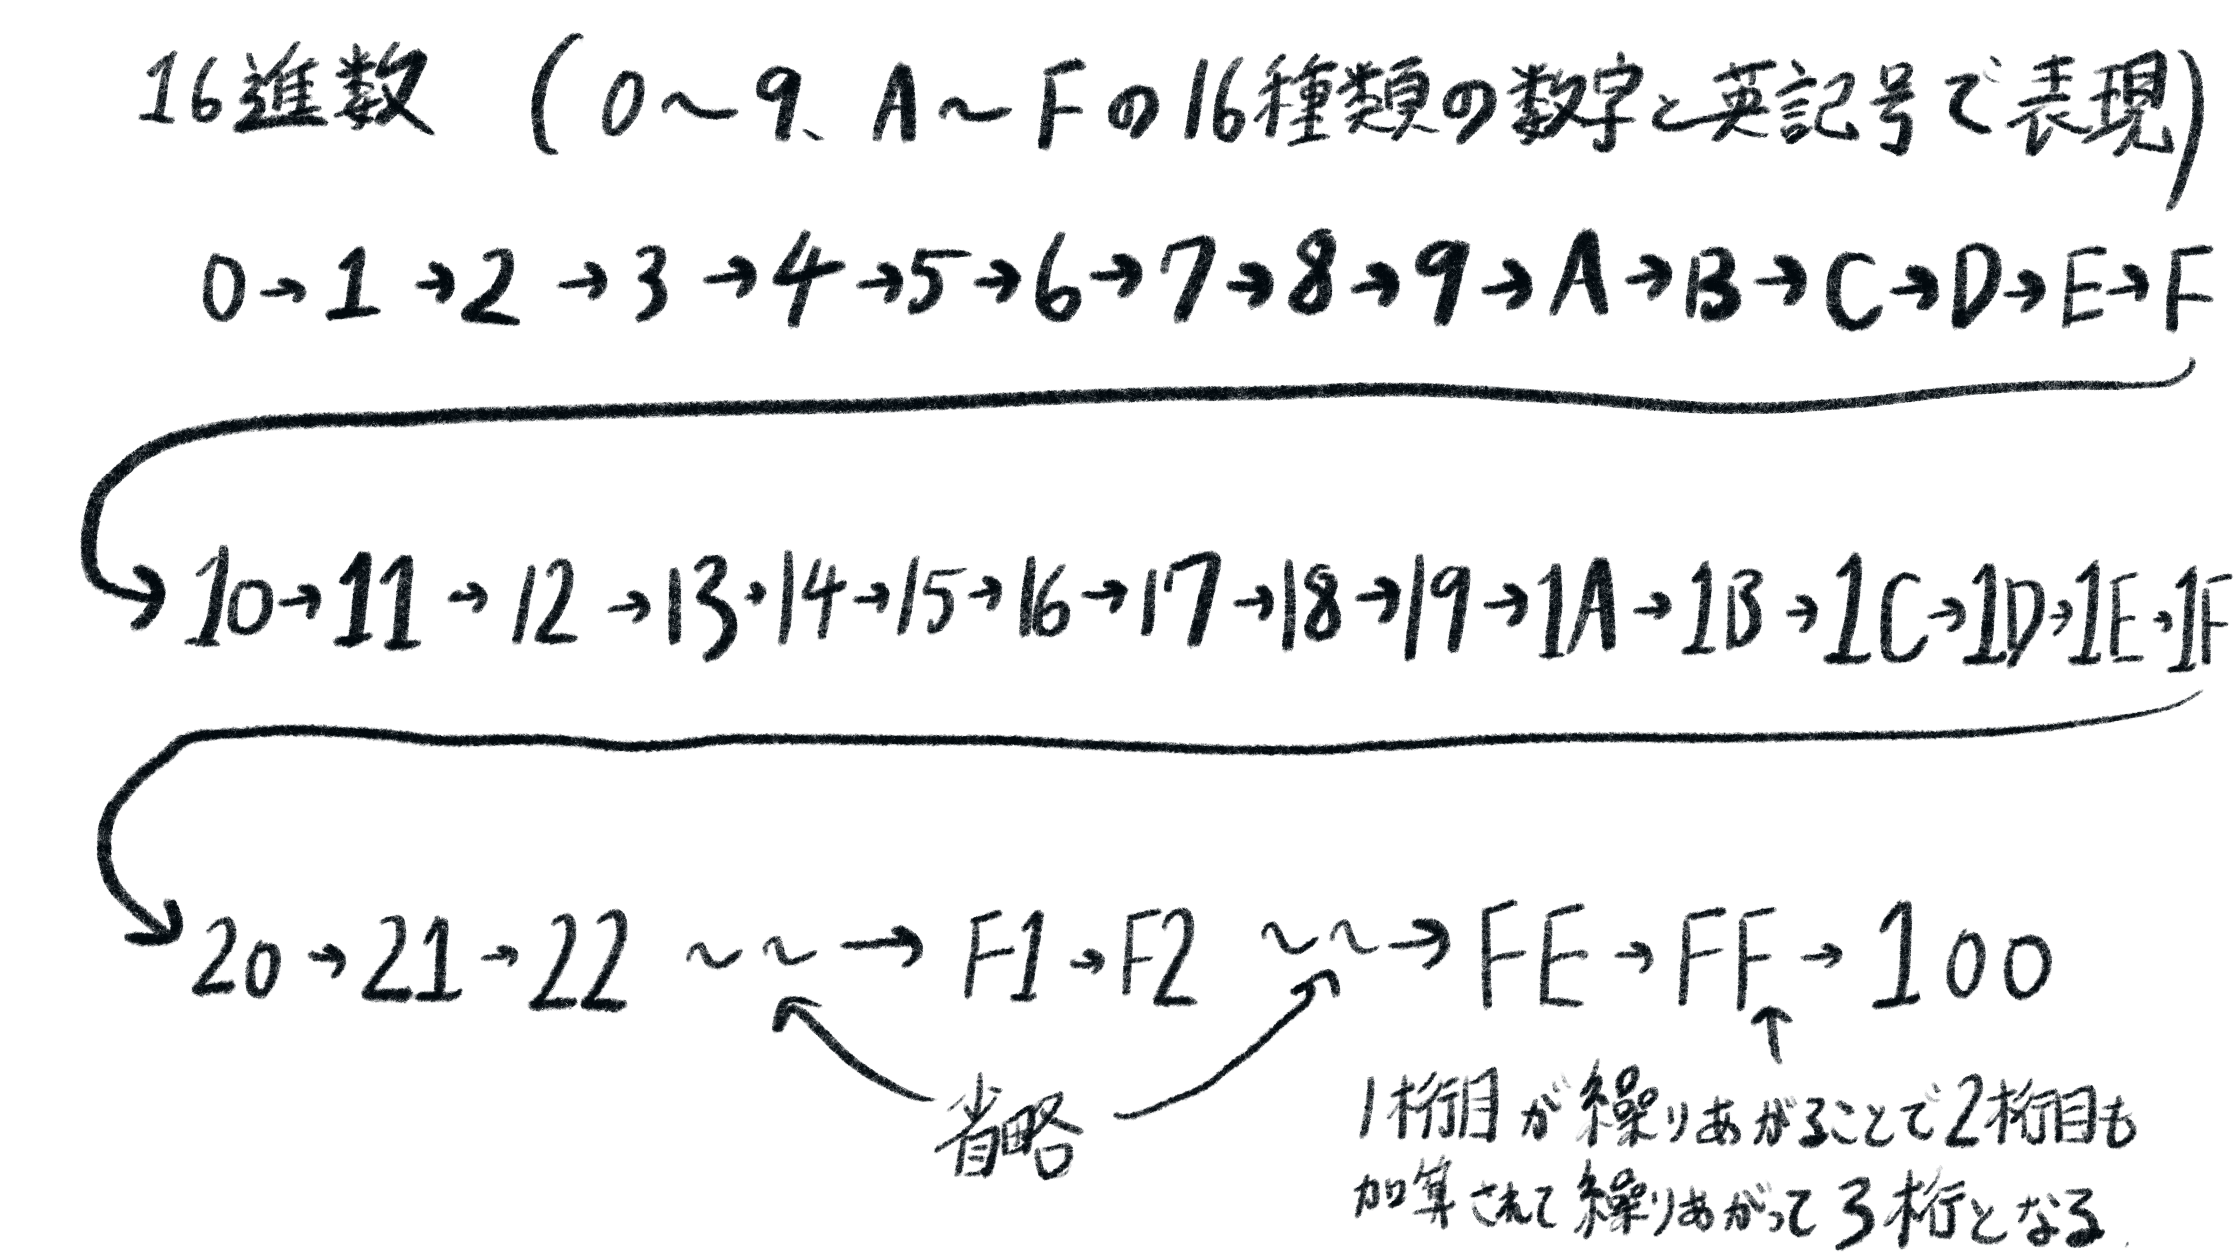 16進数 (0～9、A～Fの16種類の数字と英記号で表現)
0→1→2→3→4→5→6→7→8→9→A→B→C→D→E→F
→10→11→12→13→14→15→16→17→18→19→1A→1B→1C→1D→1E→1F
→20→21→22 ～～→F1→F2 ～～→FE→FF→100
省略
↑
1桁目が繰りあがることで2桁目も
加算されて繰りあがって3桁となる